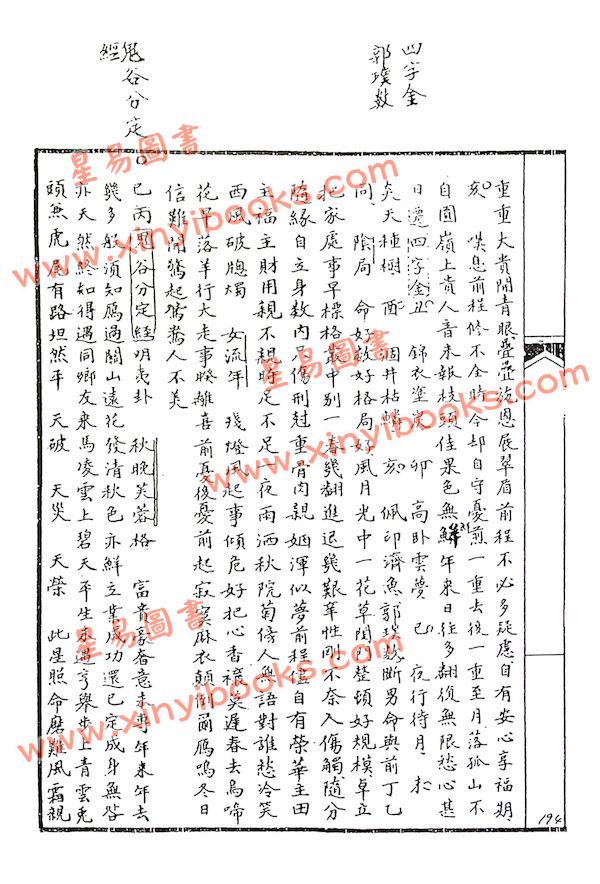 四字金
郭璞数
鬼谷分定
經
重重大貴開青眼疊疊施恩展翠眉前程不必多疑慮自有安心享福期
亥 嘆息前程修不全時今却自守憂煎一重去後一重至月落孤山不
自圓嶺上貴人音未報枝頭佳果色無鮮年來日往多翻復無限愁心甚
日還四字金丑 錦衣塗炭 卯 高卧雲夢 巳 夜行待月
炎天種樹 酉 涸井枯鱗 亥 佩印濟魚郭璞数断男命與前丁乙
同 陰局 命好数好格局好風月光中一花草閨門整頓好規模草立
把家處事早標格 中別一春幾翻進退幾艱辛性剛不奈人傷觸隨分
隨緣自立身数内 傷刑尅重骨肉親姻渾似夢前程儘自有榮華主田
主福主財用親不親時足不足一夜雨洒秋院菊傍人無語對誰愁冷笑
西風破牕燭 女流年 殘燈風起事傾危好把心香 遲春去鳥啼
花早落羊行犬走事睽離喜前憂後憂前起寂寞麻衣顛倒 雁鳴冬日
信難聞鴛起鴛鴦人不美
己丙鬼谷分定經明夷卦 秋晚芙蓉格 富貴豪奢意未專年來年去
幾多般須知雁過關山遠花發清秋色亦鮮立業成功還已定成身無咎
亦天然終知得遇同鄉友乘馬凌雲上碧天平生未遇亨舉步上青雲兎
頭無虎尾有路坦然平 天破 天災 天榮 此星照命磨難風霜親
194
星易圖書
www.xinyibooks.com
星易圖書
www.xinyibooks.com
星易圖書
www.xinyibooks.com
星易圖書
www.xinyibooks.com